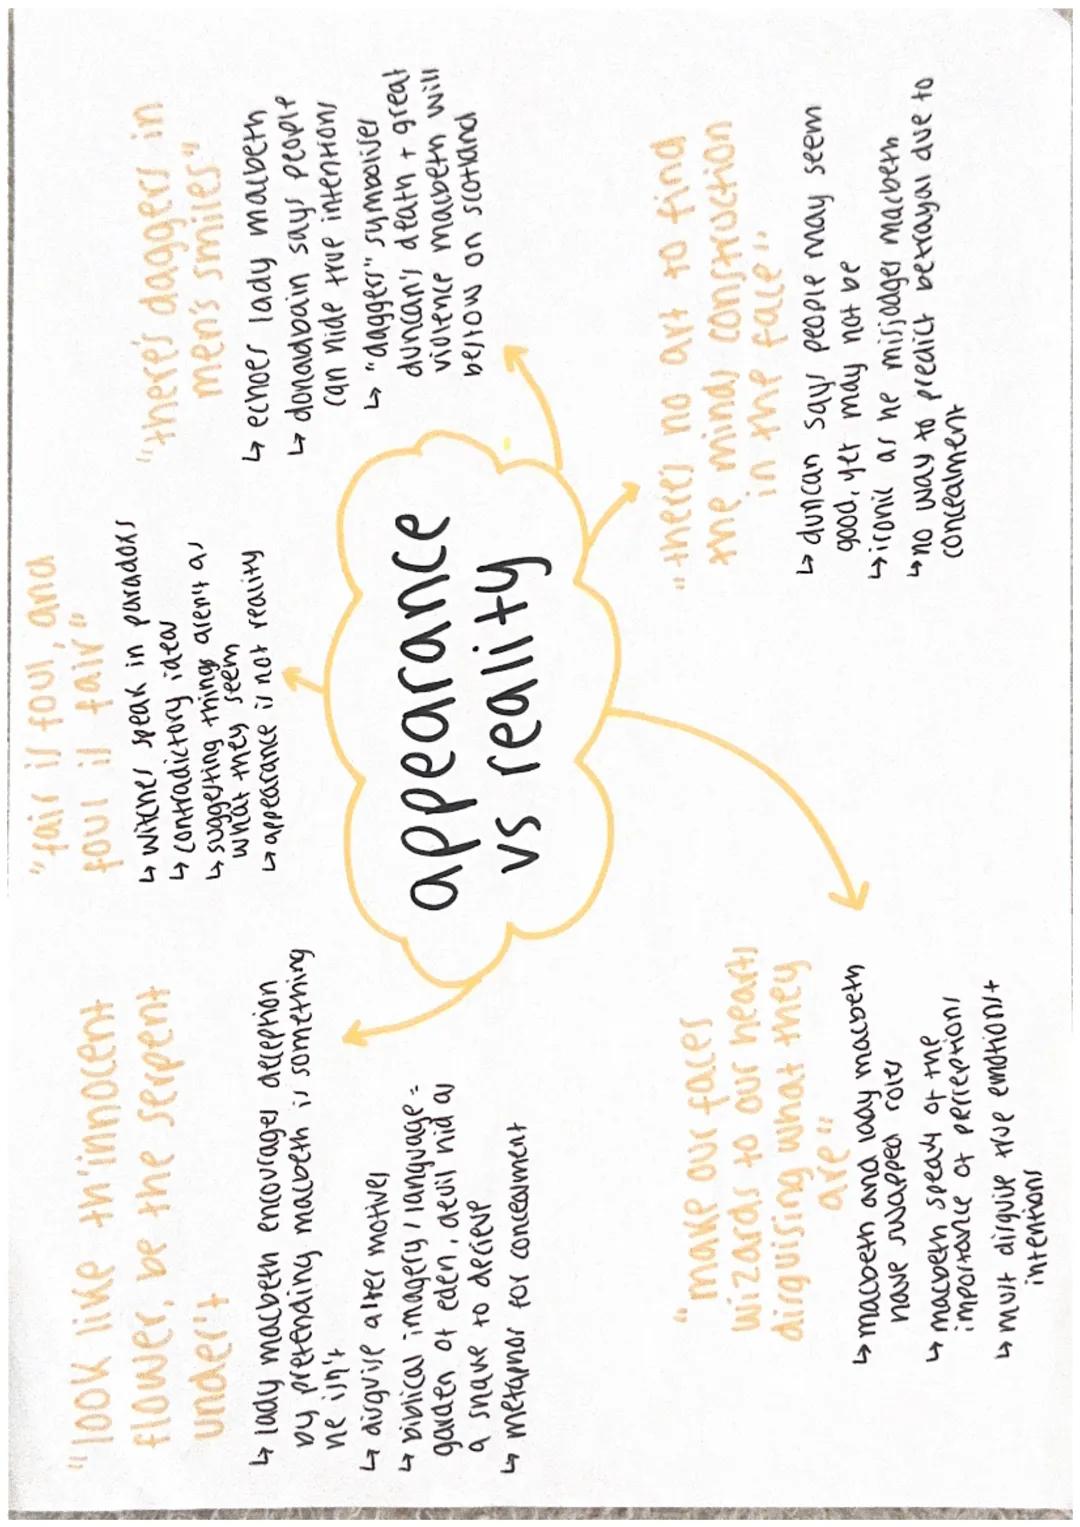 "look like th'innocent
flower, be the serpent
under't
↳ lady macbeth encourages deception
by pretending macbeth is something
he isn't
↳ disguise alter motives
↳ biblical imagery / language =
garden of eden, devil hid as
a snake to decieve
↳ metaphor for concealment
"fair is foul, and
foul is fair"
↳ witches speak in paradoxs
↳ contradictory ideas
↳ suggesting things aren't as
what they seem
↳ appearance is not reality
"there's daggers in
men's smiles"
↳ echoes lady macbeth
↳ donaldbain says people
can hide true intentions
↳ "daggers" symbolises
duncan's death + great
violence macbeth will
bestow on scotland
appearance
vs reality
"make our faces
wizards to our hearts
disguising what they
are"
↳ macbeth and lady macbeth
have swapped roles
↳ macbeth speaks of the
importance of perceptions
↳ must disguise true emotions +
intentions
"there's no art to find
the minds construction
in the face"
↳ duncan says people may seem
good, yet may not be
↳ ironic as he misjudges macbeth
↳ no way to predict betrayal due to
concealment